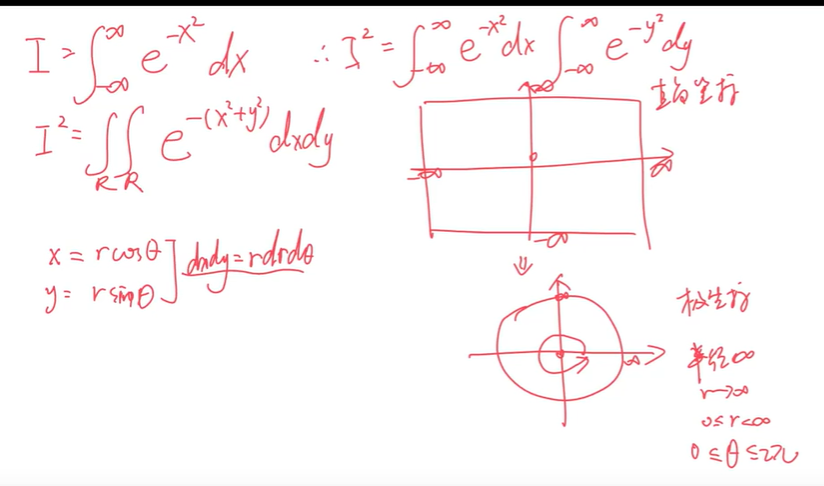 I = ∫_{-∞}^{∞} e^{-x²} dx ∴ I² = ∫_{-∞}^{∞} e^{-x²} dx ∫_{-∞}^{∞} e^{-y²} dy
I² = ∫_R ∫_R e^{-(x²+y²)} dxdy
∞
直角坐标
-∞ 0 ∞
-∞
x = r cosθ
y = r sinθ
dxdy = rdrdθ
⇓
极坐标
∞
∞
半径∞
r→∞
0≤r<∞
0≤θ≤2π